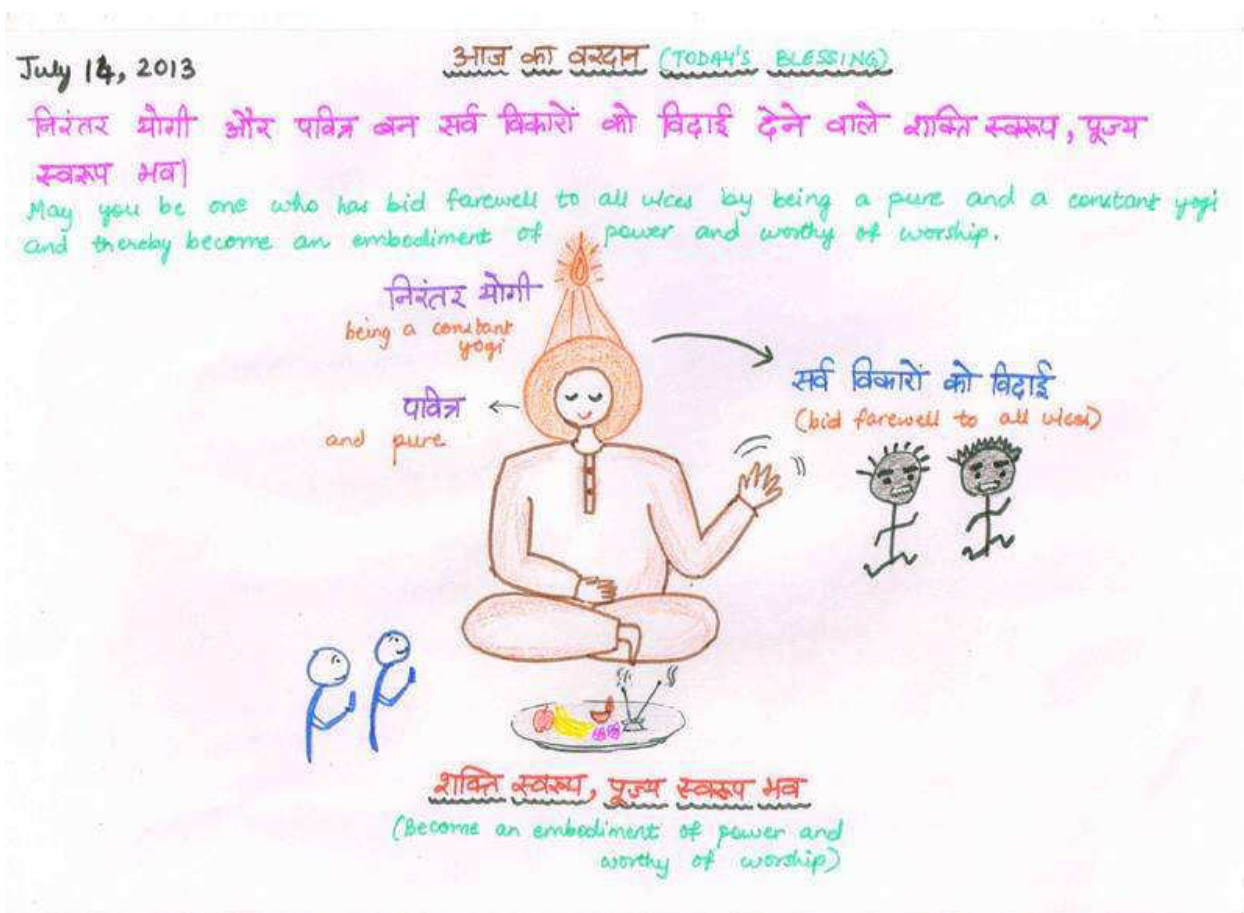 July 14, 2013
आज का वरदान (TODAY'S BLESSING)
निरंतर योगी और पवित्र बन सर्व विकारों को विदाई देने वाले शक्ति स्वरूप, पूज्य
स्वरूप भव|
May you be one who has bid farewell to all vices by being a pure and a constant yogi
and thereby become an embodiment of power and worthy of worship.
निरंतर योगी
being a constant
yogi
पवित्र
and pure
सर्व विकारों को विदाई
(bid farewell to all vices)
शक्ति स्वरूप, पूज्य स्वरूप भव
(Become an embodiment of power and
worthy of worship)